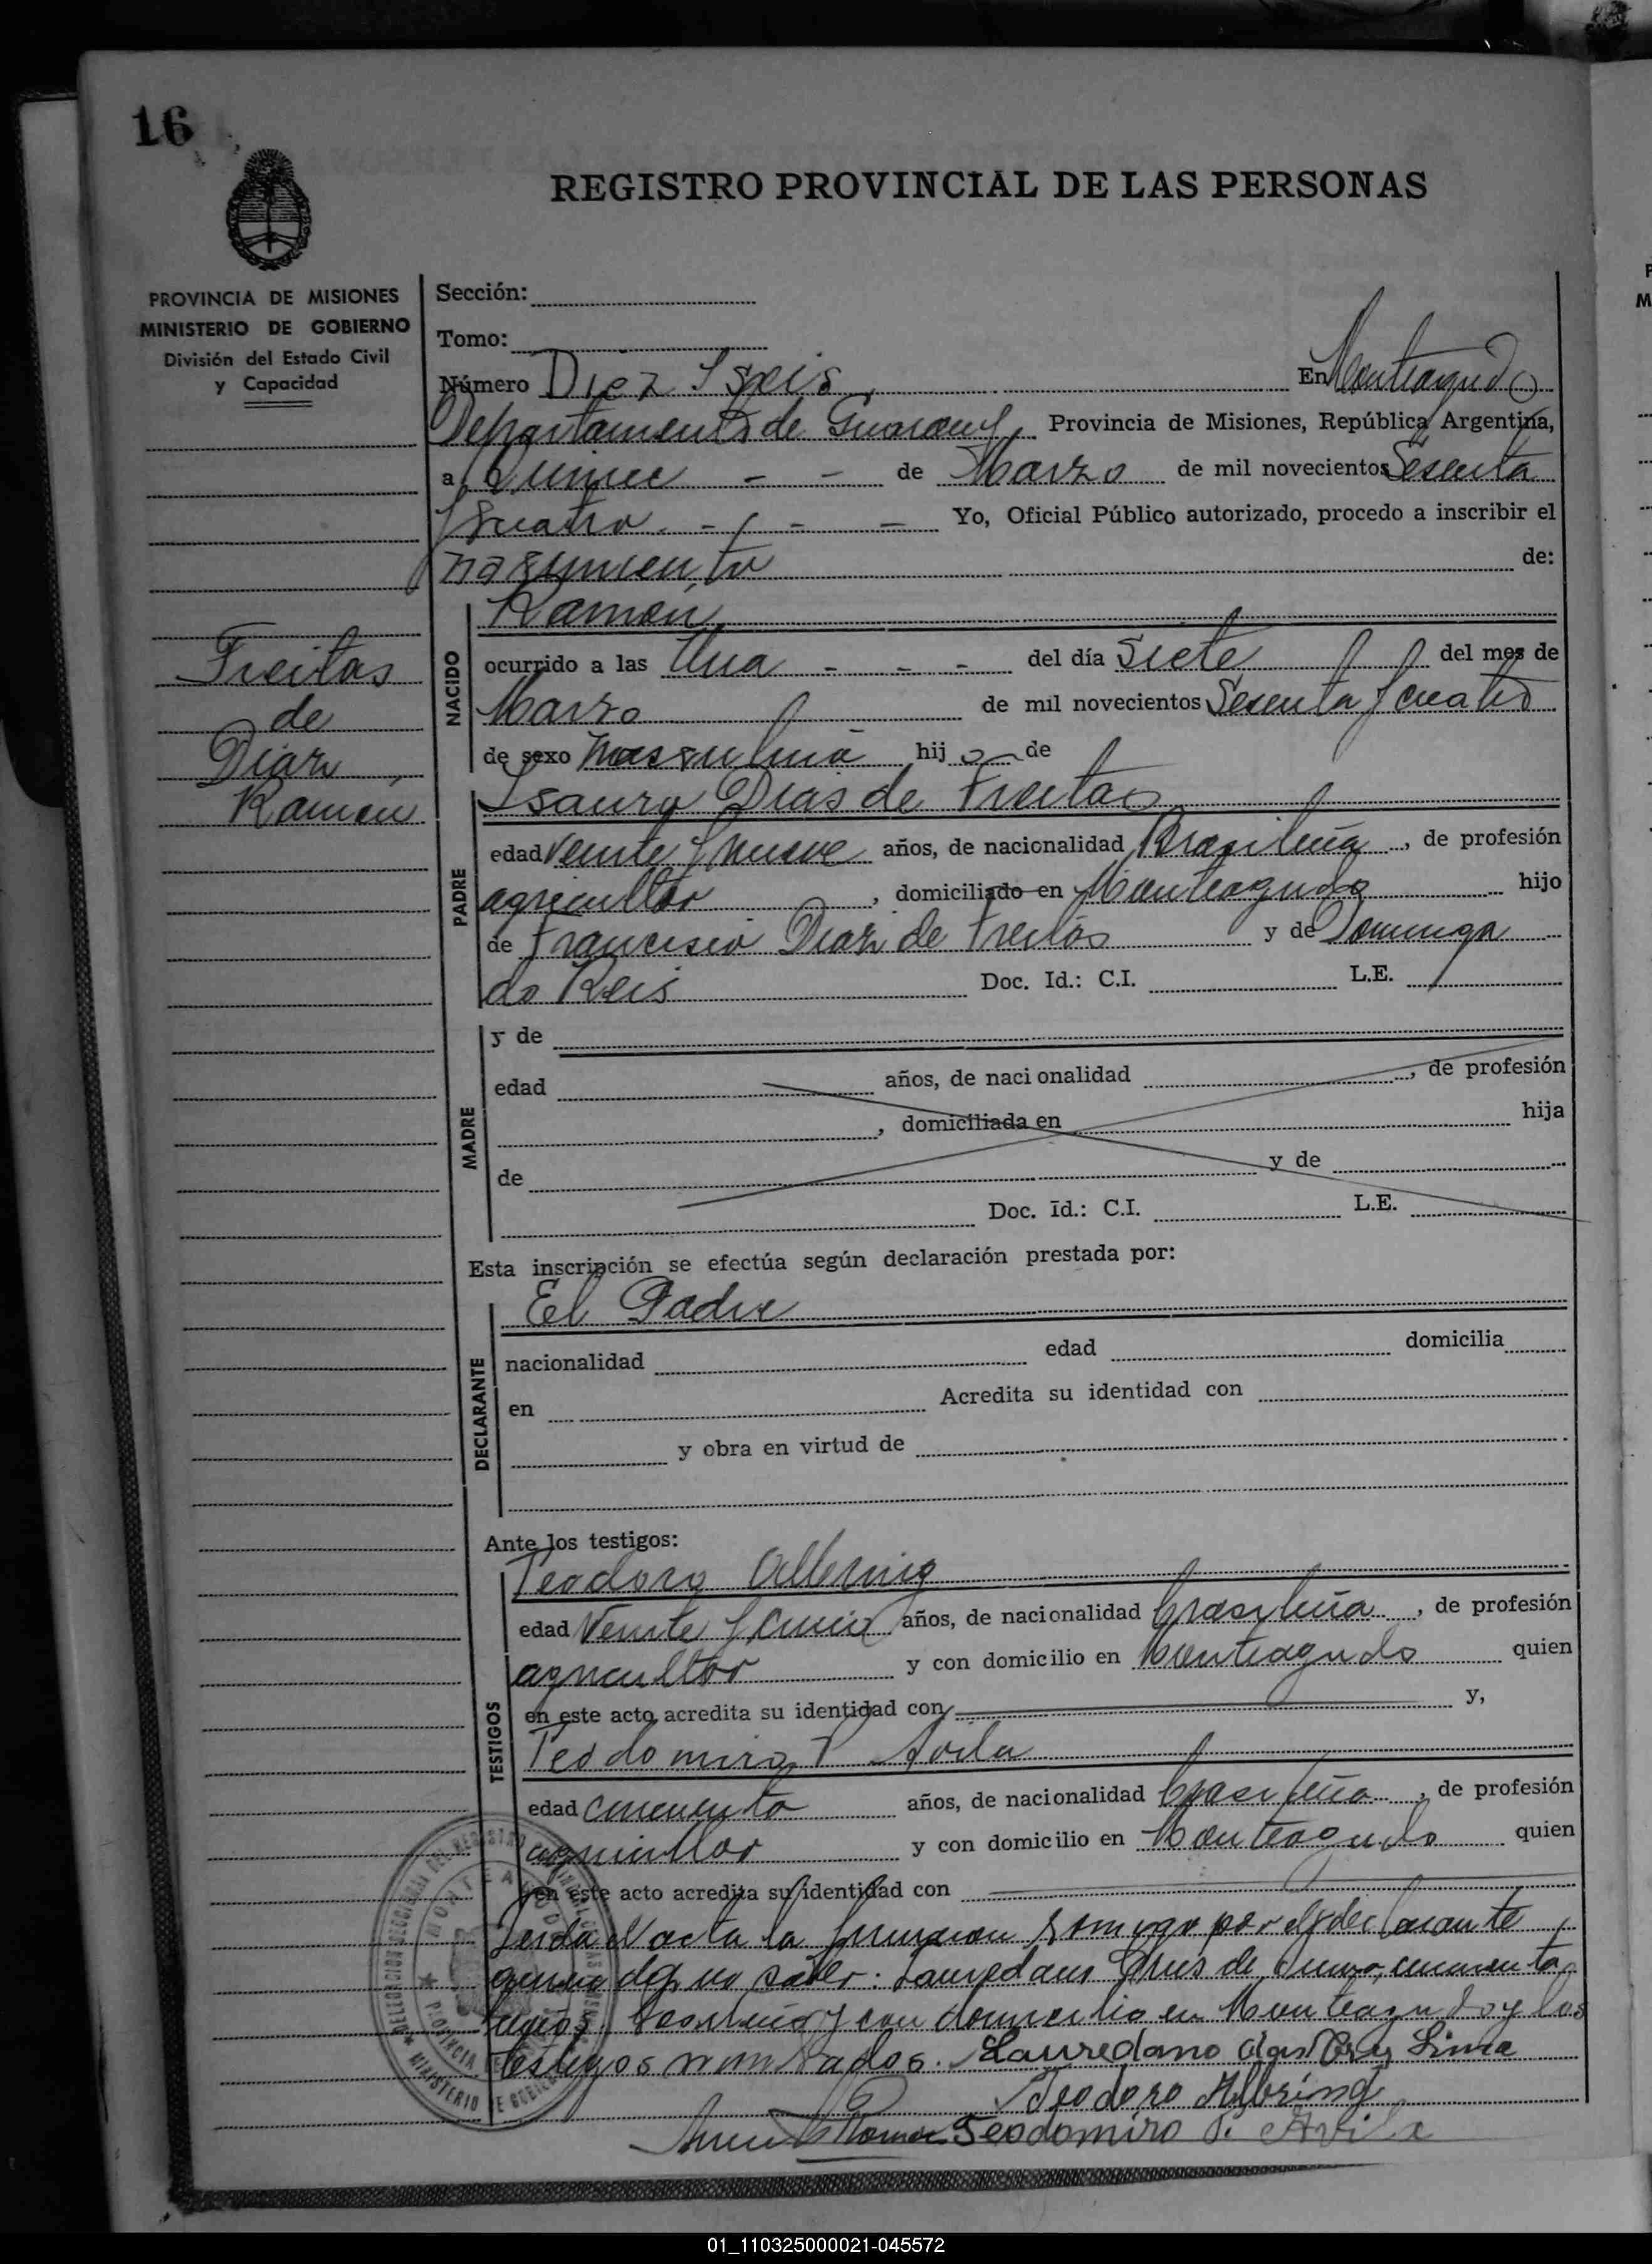 16
REGISTRO PROVINCIAL DE LAS PERSONAS
PROVINCIA DE MISIONES
MINISTERIO DE GOBIERNO
División del Estado Civil
y Capacidad
Sección:
Tomo:
Número Diez y seis En Monteagudo
Departamento de Guaraní Provincia de Misiones, República Argentina,
a Quince - - de Marzo de mil novecientos Sesenta
y cuatro - - - - Yo, Oficial Público autorizado, procedo a inscribir el
nasymiento de:
Ramón
Freitas
de
Diaz
Ramón
NACIDO
ocurrido a las Una - - - del día Siete del mes de
Marzo de mil novecientos Sesenta y cuatro
de sexo masculino hijo de
PADRE
Isauro Dias de Freitas
edad Veinte y nueve años, de nacionalidad Brasileña, de profesión
agricultor, domiciliado en Monteagudo hijo
de Francisco Diaz de Freitas y de Dominga
do Reis Doc. Id.: C.I. L.E.
MADRE
y de
edad años, de nacionalidad , de profesión
, domiciliada en hija
de y de
Doc. Id.: C.I. L.E.
Esta inscripción se efectúa según declaración prestada por:
DECLARANTE
El Padre
nacionalidad edad domicilia
en Acredita su identidad con
y obra en virtud de
Ante los testigos:
TESTIGOS
Teodoro Albring
edad Veinte y cinco años, de nacionalidad brasileña, de profesión
agricultor y con domicilio en Monteagudo quien
en este acto acredita su identidad con y,
Teodomiro P Avila
edad cincuenta años, de nacionalidad brasileña, de profesión
agricultor y con domicilio en Monteagudo quien
en este acto acredita su identidad con
Leida el acta la firmaron conmigo por el declarante
quien dijo no saber: Lauredano Crus de Lima, cincuenta
brasileño y con domicilio en Monteagudo y los
testigos nombrados. Lauredano das Cruz Lima
Teodoro Albring
Teodomiro P. Avila
MONTEAGUDO
PROVINCIA
MINISTERIO DE GOBIERNO
01_110325000021-045572